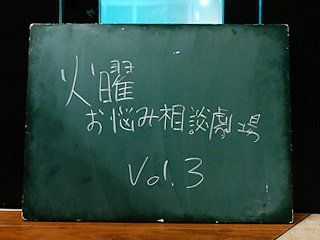 火曜
お悩み相談劇場
Vol.3